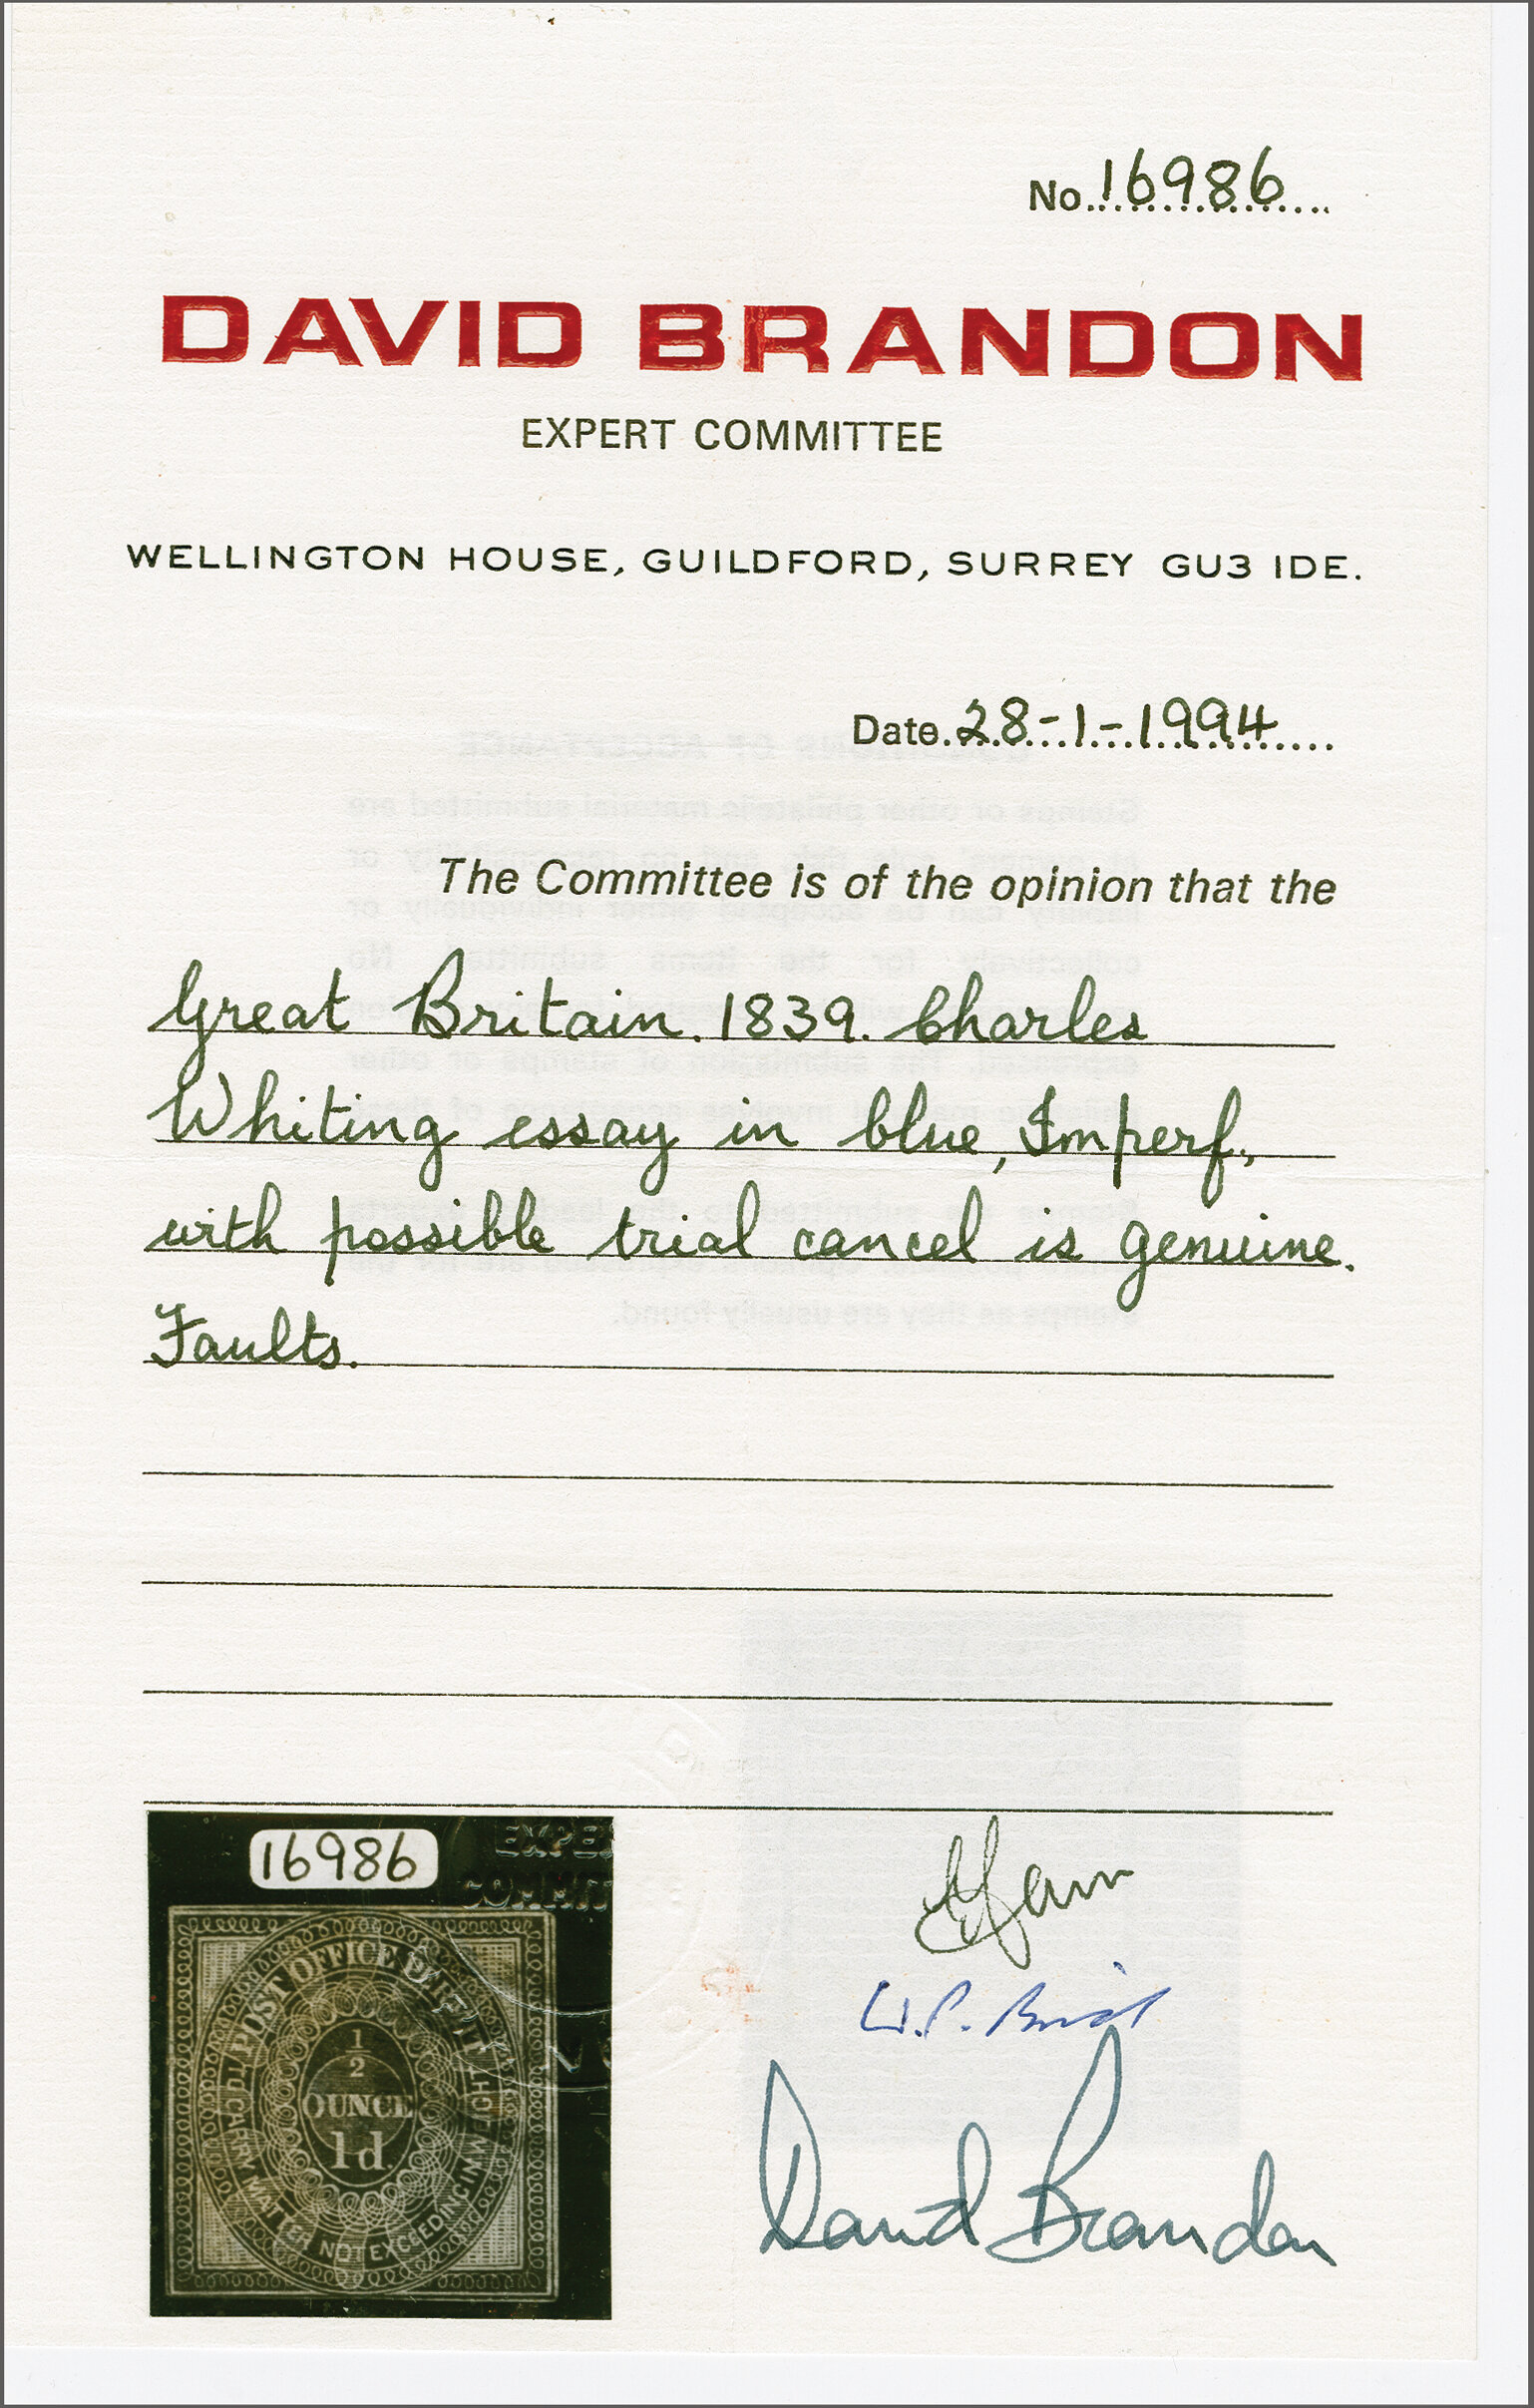 No. 16986
DAVID BRANDON
EXPERT COMMITTEE
WELLINGTON HOUSE, GUILDFORD, SURREY GU3 IDE.
Date. 28-1-1994
The Committee is of the opinion that the
Great Britain. 1839. Charles
Whiting essay in blue, Imperf.,
with possible trial cancel is genuine.
Faults.
16986
EXPE
COMMITTEE
POST OFFICE PERMIT
TO CARRY MATTER NOT EXCEEDING IN WEIGHT
1/2
OUNCE
1d.
David Brandon